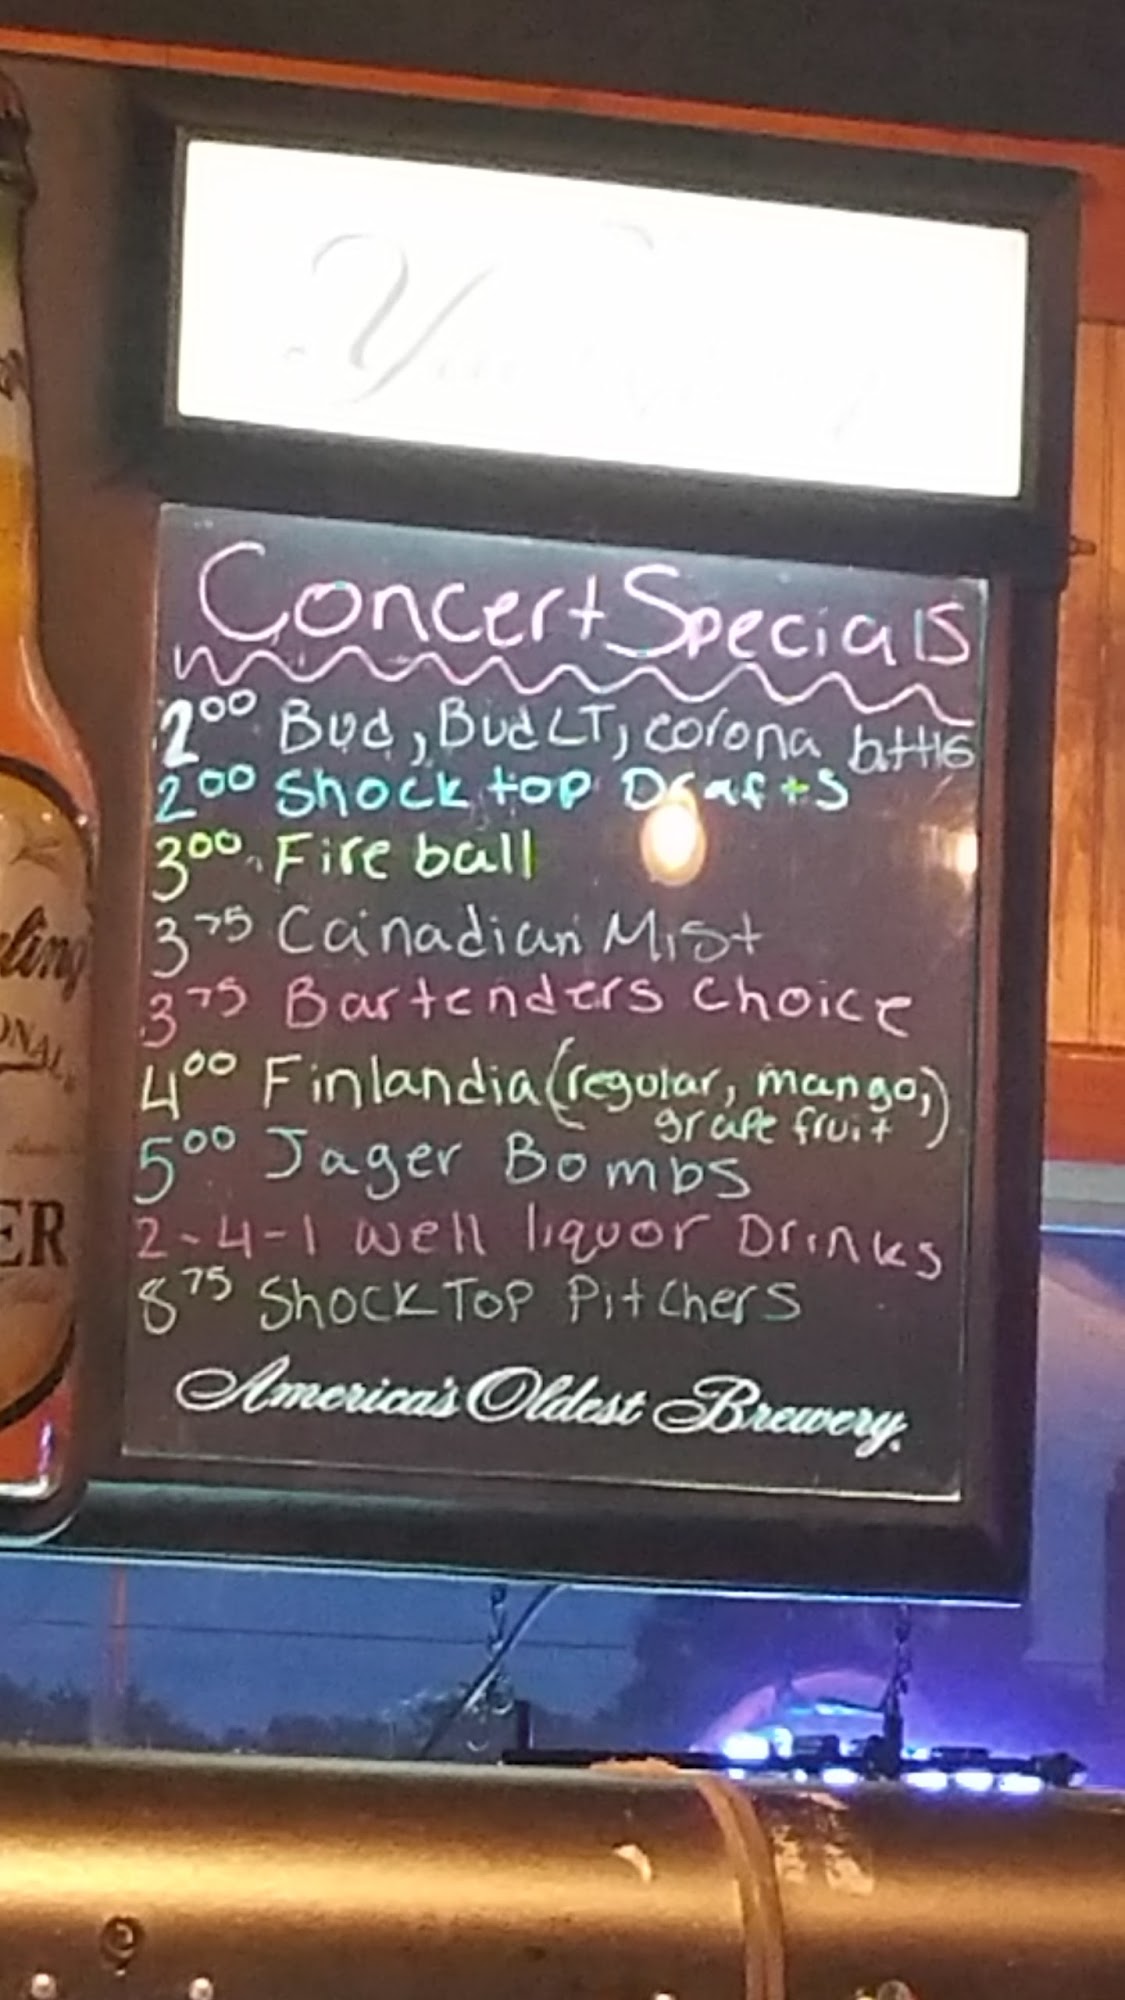 Concert Specials
2⁰⁰ Bud, Bud LT, corona bttls
2⁰⁰ Shock top Drafts
3⁰⁰ Fire ball
3⁷⁵ Canadian Mist
3⁷⁵ Bartenders choice
4⁰⁰ Finlandia (regular, mango,
grape fruit)
5⁰⁰ Jager Bombs
2-4-1 well liquor Drinks
8⁷⁵ Shock Top Pitchers
America's Oldest Brewery.
ling
ER